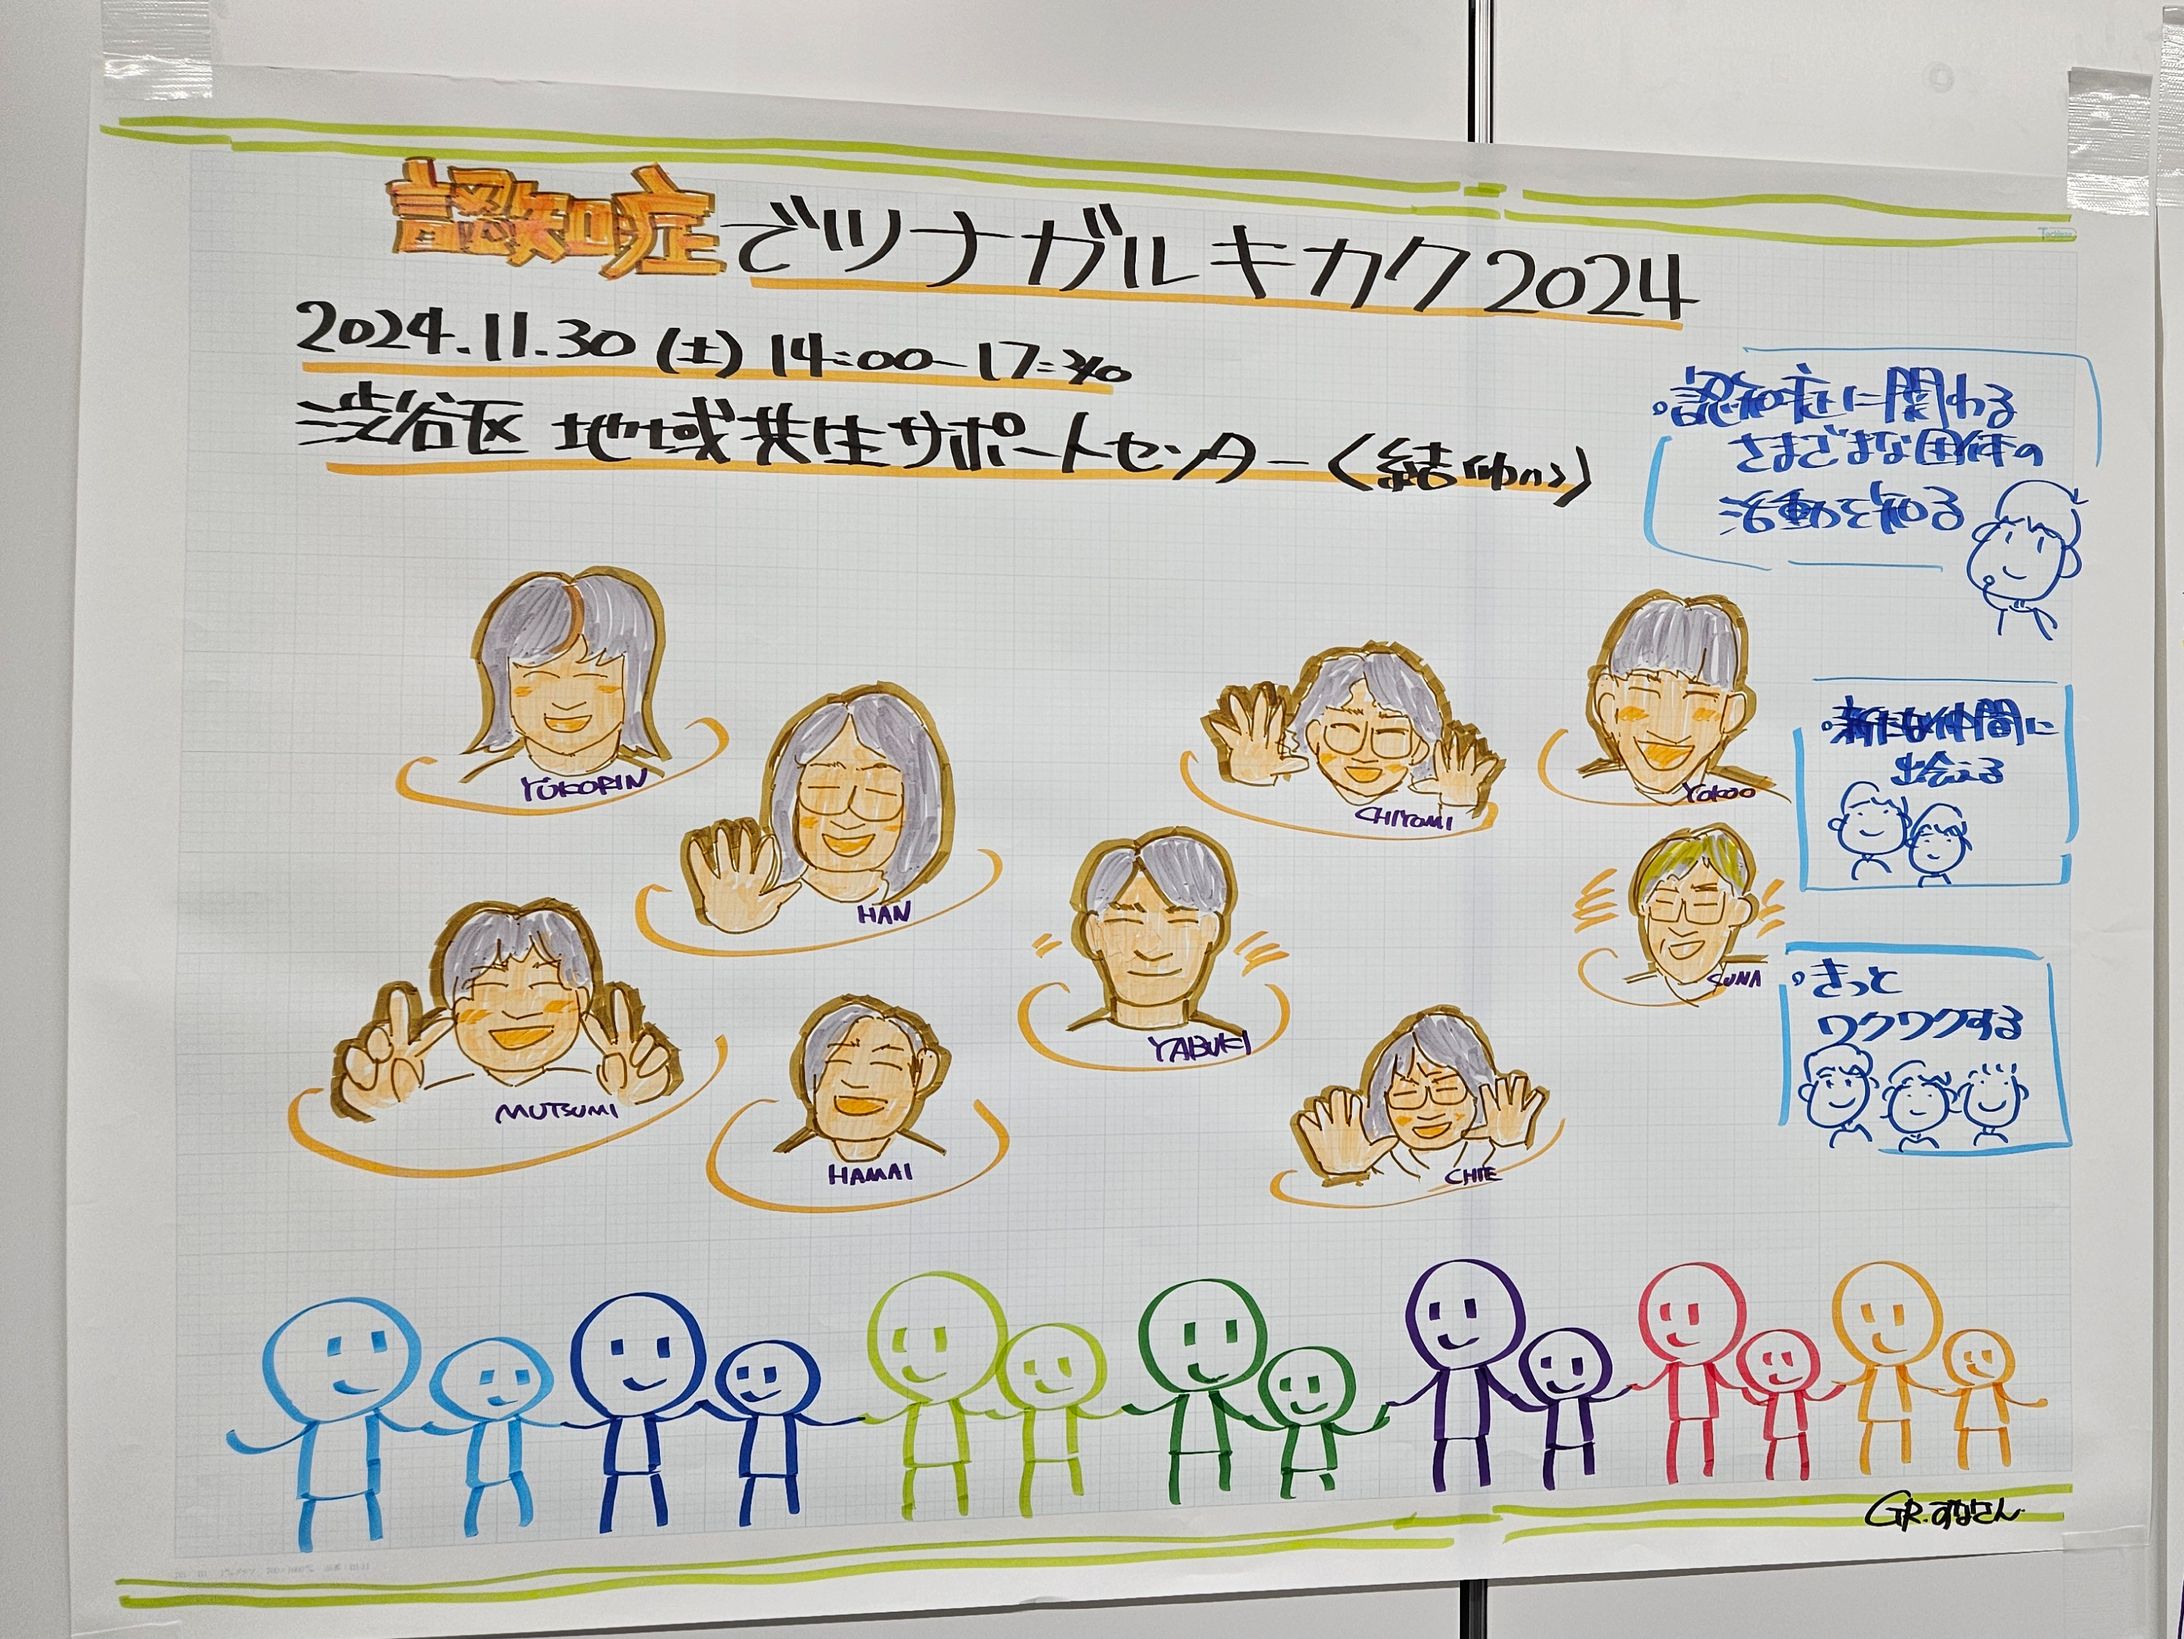 認知症でツナガルキカク2024
2024.11.30(土)14:00-17:30
渋谷区 地域共生サポートセンター〈結ゆい〉
・認知症に関わる
さまざまな団体の
活動を知る
・新たな仲間に
出会える
・きっと
ワクワクする
YUKORIN
HAN
CHIYOMI
YOKOO
MUTSUMI
HAMAI
YABUKI
SUNA
CHIE
GR.すなさん